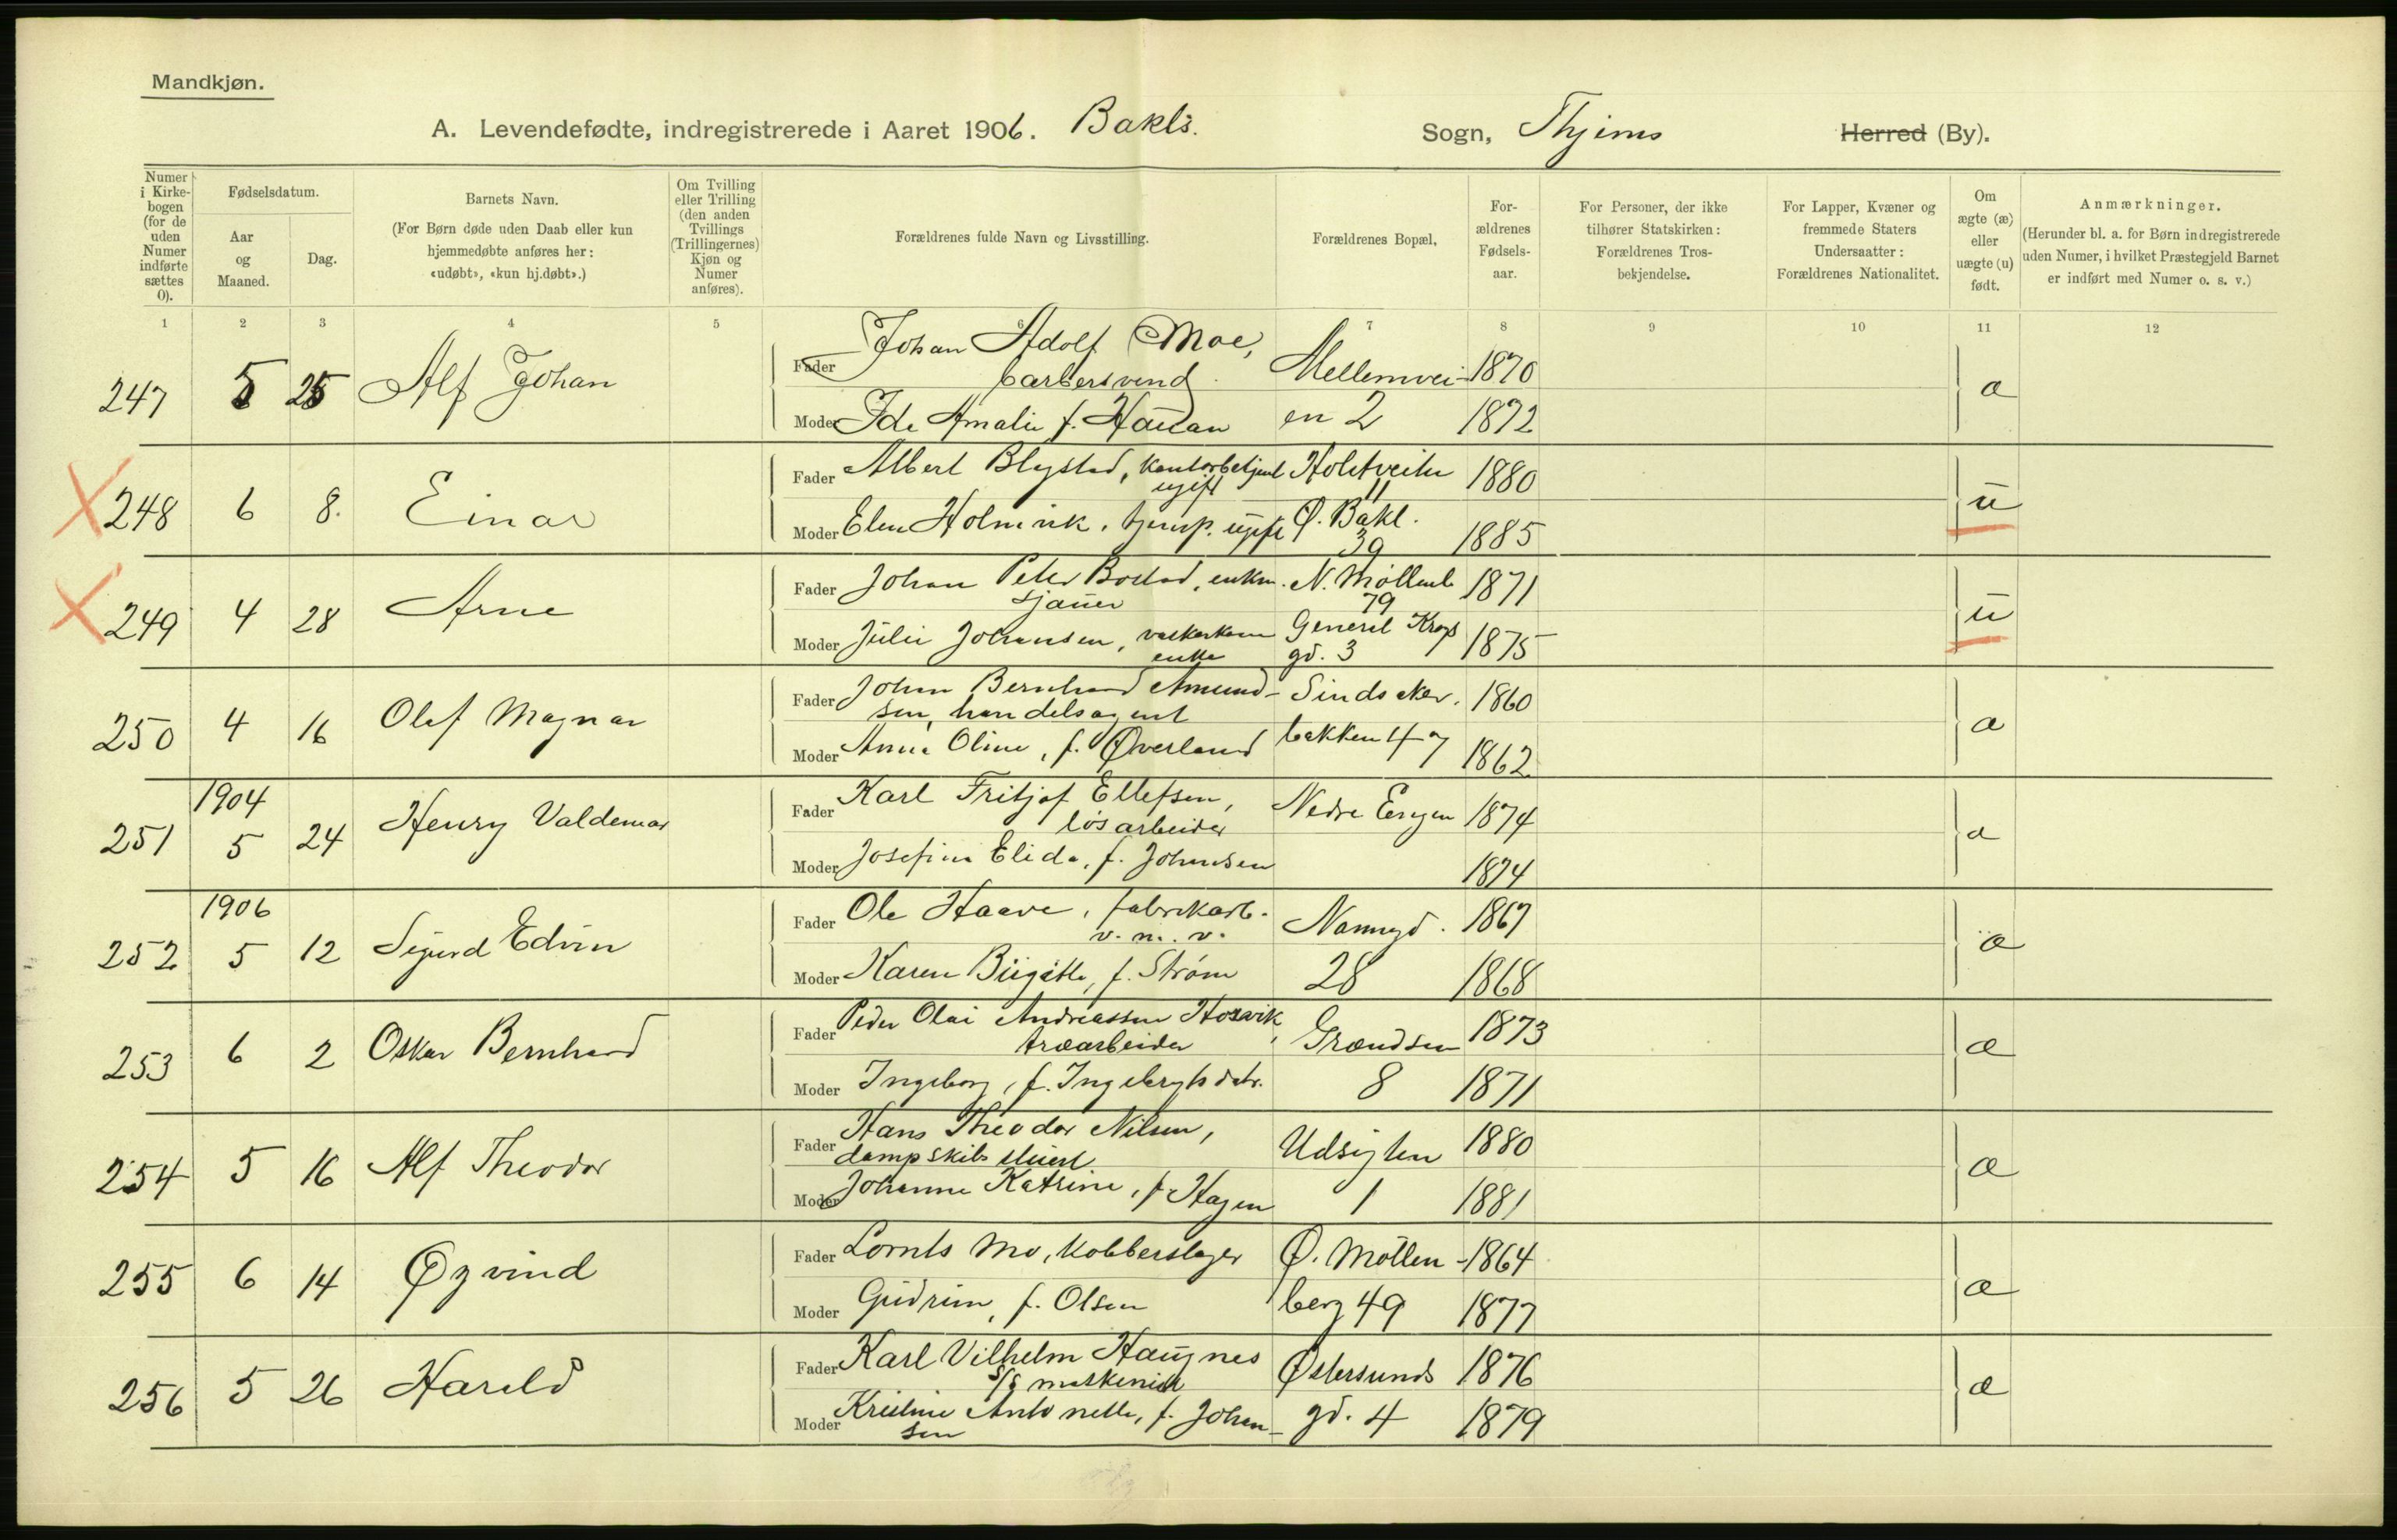 Mandkjøn.
A. Levendefødte, indregistrerede i Aaret 1906. Bakls. Sogn, Thjems Herred (By).
Numer i Kirkebogen (for de uden Numer indførte sættes 0).
Fødselsdatum.
Aar og Maaned.
Dag.
Barnets Navn.
(For Børn døde uden Daab eller kun hjemmedøbte anføres her: «udøbt», «kun hj.døbt».)
Om Tvilling eller Trilling (den anden Tvillings (Trillingernes) Kjøn og Numer anføres).
Forældrenes fulde Navn og Livsstilling.
Forældrenes Bopæl.
Forældrenes Fødselsaar.
For Personer, der ikke tilhører Statskirken: Forældrenes Trosbekjendelse.
For Lapper, Kvæner og fremmede Staters Undersaatter: Forældrenes Nationalitet.
Om ægte (æ) eller uægte (u) født.
Anmærkninger.
(Herunder bl. a. for Børn indregistrerede uden Numer, i hvilket Præstegjeld Barnet er indført med Numer o. s. v.)
1 2 3 4 5 6 7 8 9 10 11 12
247 5 25 Alf Johan
Fader Johan Adolf Moe, Mellemvei- 1870
barbersvend
Moder Ida Amalie f. Hauan en 2 1872 æ
248 6 8. Einar
Fader Albert Blystad, kontorbetjent Holstveiten 1880
ugift 11
Moder Elen Holmvik, tjenp. ugift Ø. Bakl. 1885 u
39
249 4 28 Arne
Fader Johan Peter Bostad, enkm. N. Møllenb 1871
sjauer 79
Moder Julie Johansen, vaskerkone General Krogs 1875 u
enke gd. 3
250 4 16 Olaf Magnar
Fader Johan Bernhard Amund- Sindsaker. 1860
sen, handelsagent
Moder Anna Oline, f. Øverland bakken 47 1862 æ
1904
251 5 24 Henry Valdemar
Fader Karl Fritjof Ellefsen, Nedre Engen 1874
løsarbeider
Moder Josefine Elida, f. Johnsen 1874 æ
1906
252 5 12 Sigurd Edvin
Fader Ole Haave, fabrikarb. Nannygd. 1867
v. m. v.
Moder Karen Birgitte, f. Strøm 28 1868 æ
253 6 2 Oskar Bernhard
Fader Peder Olai Andreassen Hosvik, Grændsen 1873
træarbeider
Moder Ingeborg, f. Ingebrigtsdatr. 8 1871 æ
254 5 16 Alf Theodor
Fader Hans Theodor Nilsen, Udsigten 1880
dampskibs stuert
Moder Johanne Katrine, f. Hagen 1 1881 æ
255 6 14 Øyvind
Fader Lornts Mo, kobberslager Ø. Møllen- 1864
Moder Gudrun, f. Olsen berg 49 1877 æ
256 5 26 Harald
Fader Karl Vilhelm Haugnes Østersunds 1876
S/S maskenist
Moder Kristine Antonette, f. Johan- gd. 4 1879 æ
sen